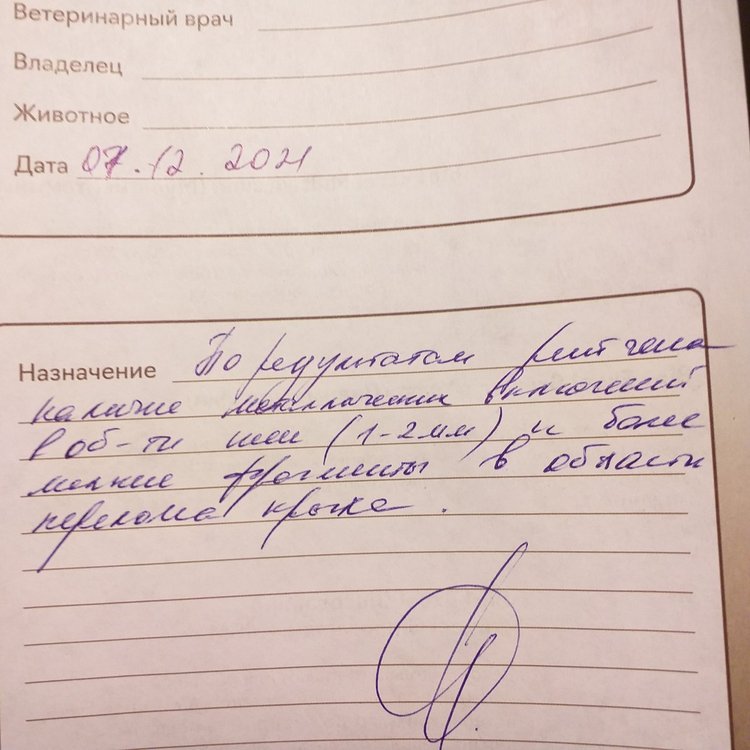 Ветеринарный врач
Владелец
Животное
Дата 07.12.2021
Назначение По результатам рентгена
наличие металлических включений
в об-ти шеи (1-2 мм) и более
мелкие фрагменты в области
перелома крыла.